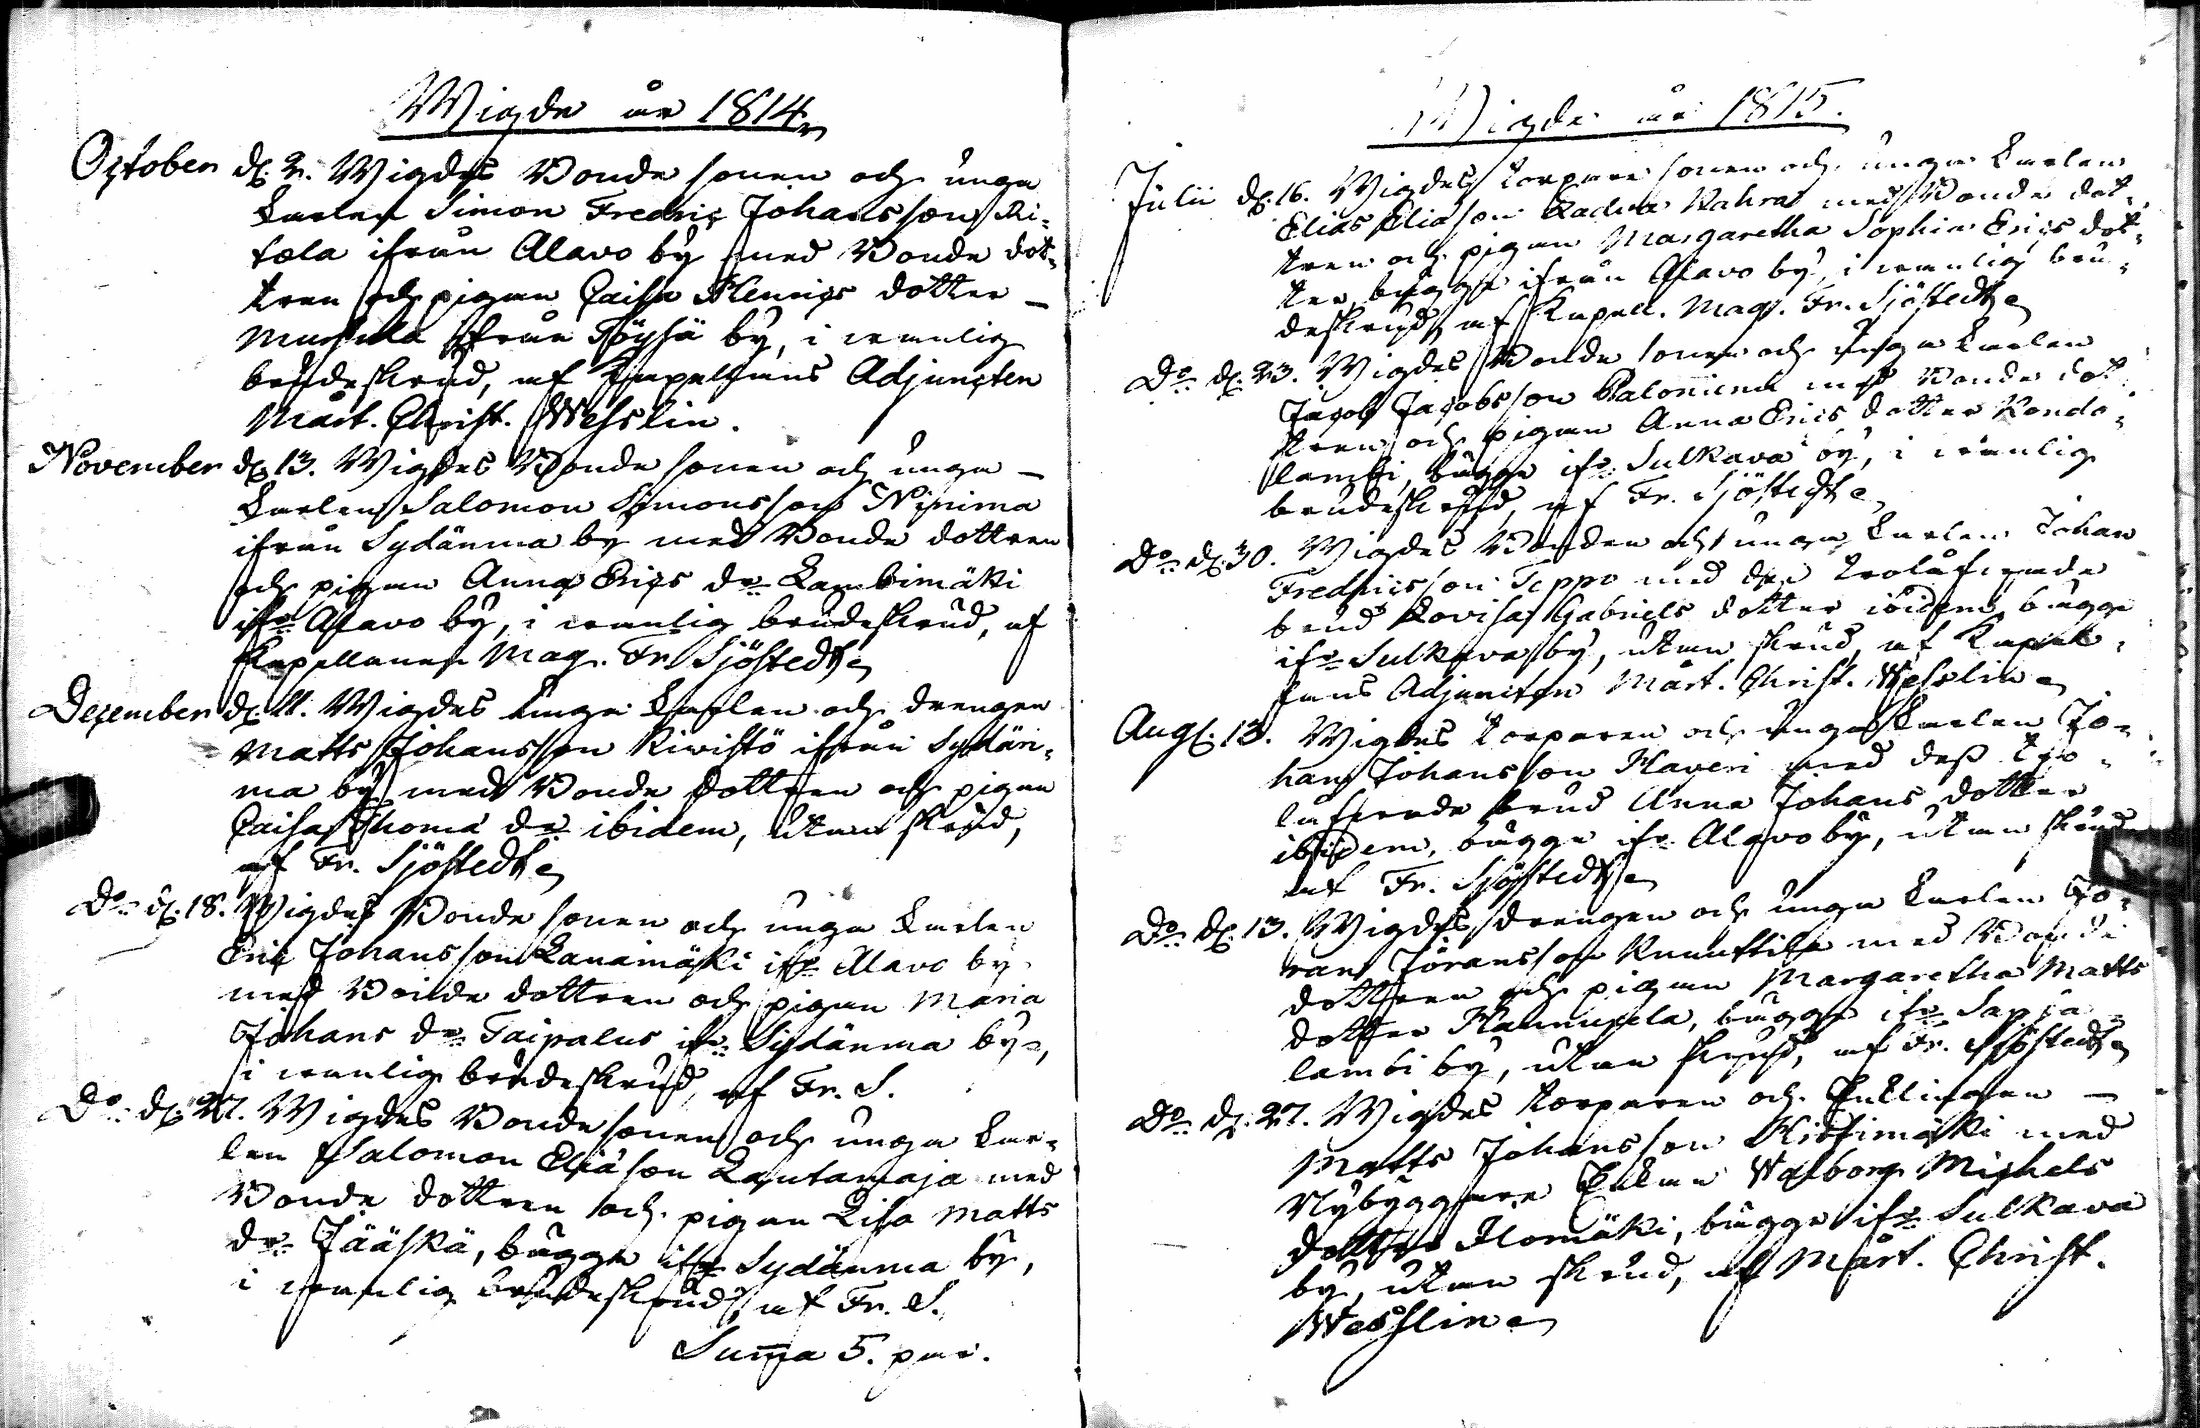 Wigde år 1814.
October d. 2. Wigdes Bonde sonen och unga
Karlen Simon Fredric Johansson Ri-
tola ifrån Alavo by med Bonde dot-
tren och pigan Caisa Henrics dotter
ifrån Töysä by, i wanlig
brudeskrud, af Kapellans Adjuncten
Mårt. Christ. Wesslin.
November d. 13. Wigdes Bonde sonen och unga
Karlen Salomon Simonsson Niinima
ifrån Sydänma by med Bonde dottren
och pigan Anna Erics dr. Lambimäki
ifr. Alavo by, i wanlig brudeskrud, af
Kapellanen Mag. Fr. Sjöstedt
December d. 11. Wigdes unga Karlen och drengen
Matts Johansson Kiwistö ifrån Sydän-
ma by med Bonde dottren och pigan
Caisa Thoma dr. ibidem, utan skrud,
af Fr. Sjöstedt
Do. d. 18. Wigdes Bonde sonen och unga Karlen
Eric Johansson Lanamäki ifr. Alavo by
med Bonde dottren och pigan Maria
Johans dr. Taipalus ifr. Sydänma by,
i wanlig brudeskrud, af Fr. S.
Do. d. 27. Wigdes Bonde sonen och unga Kar-
len Salomon Eliason Lautamaja med
Bonde dottren och pigan Lisa Matts
dr. Jääskä, bägge ifr. Sydänma by,
i wanlig brudeskrud, af Fr. S.
Suma 5. par.
Wigde år 1815.
Julii d. 16. Wigdes torpare sonen och unga Karlen
Elias Eliason Kahra med Bonde dot-
tren och pigan Margaretha Sophia Erics dot-
ter, bägge ifrån Alavo by, i wanlig bru-
deskrud, af Kapell. Mag. Fr. Sjöstedt
Do. d. 23. Wigdes Bonde sonen och unga Karlen
Jacob Jacobsson Paloniemi med Bonde dot-
tren och pigan Anna Erics dotter Kondo-
lambi, bägge ifr. Sulkava by, i wanlig
brudeskrud, af Fr. Sjöstedt
Do. d. 30. Wigdes Bonden och unga Karlen Johan
Fredricsson Teppo med des trolåfwade
brud Lovisa Gabriels dotter ibidem, bägge
ifr. Sulkava by, utan skrud, af Kapel-
lans Adjuncten Mårt. Christ. Wesslin
Aug. 13. Wigdes torparen och unga Karlen Jo-
han Johansson Haveri med dess tro-
låfwade brud Anna Johans dotter
ibidem, bägge ifr. Alavo by, utan skrud
af Fr. Sjöstedt
Do. d. 13. Wigdes drengen och unga Karlen Jö-
ran Jöransson Knuuttila med Bonde
dottren och pigan Margaretha Matts
dotter Hannuxela, bägge ifr. Sapsa-
lambi by, utan skrud, af Fr. Sjöstedt
Do. d. 27. Wigdes torparen och Enklingen
Matts Johansson med
Nybyggare Enkan Walborg Michels
dotter Alomäki, bägge ifr. Sulkava
by, utan skrud, af Mårt. Christ.
Wesslin